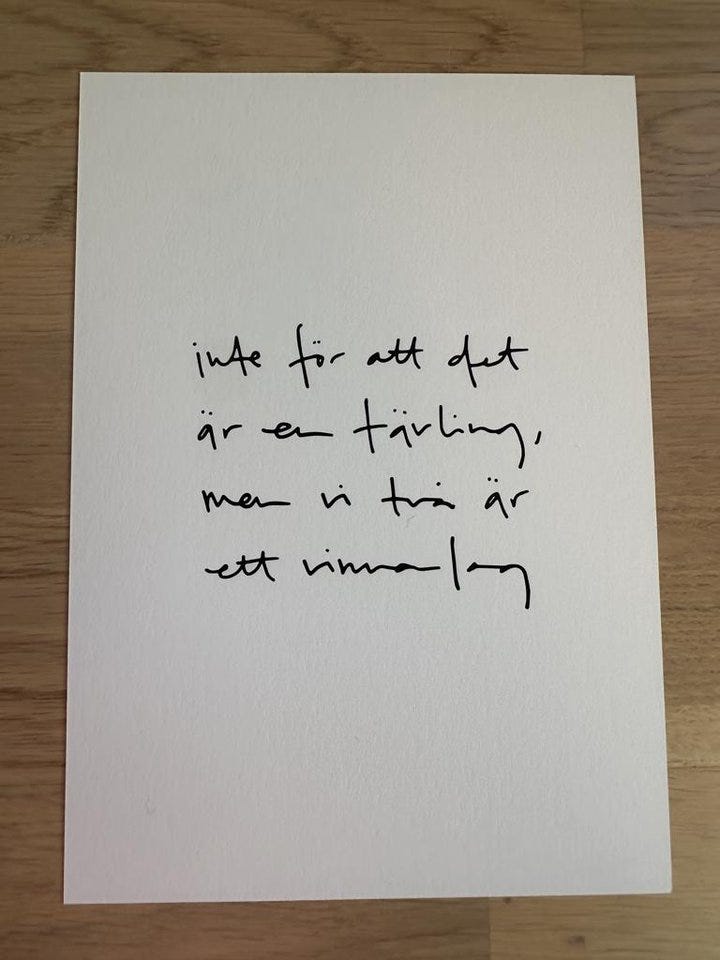 inte för att det
är en tävling,
men vi två är
ett vinnarlag